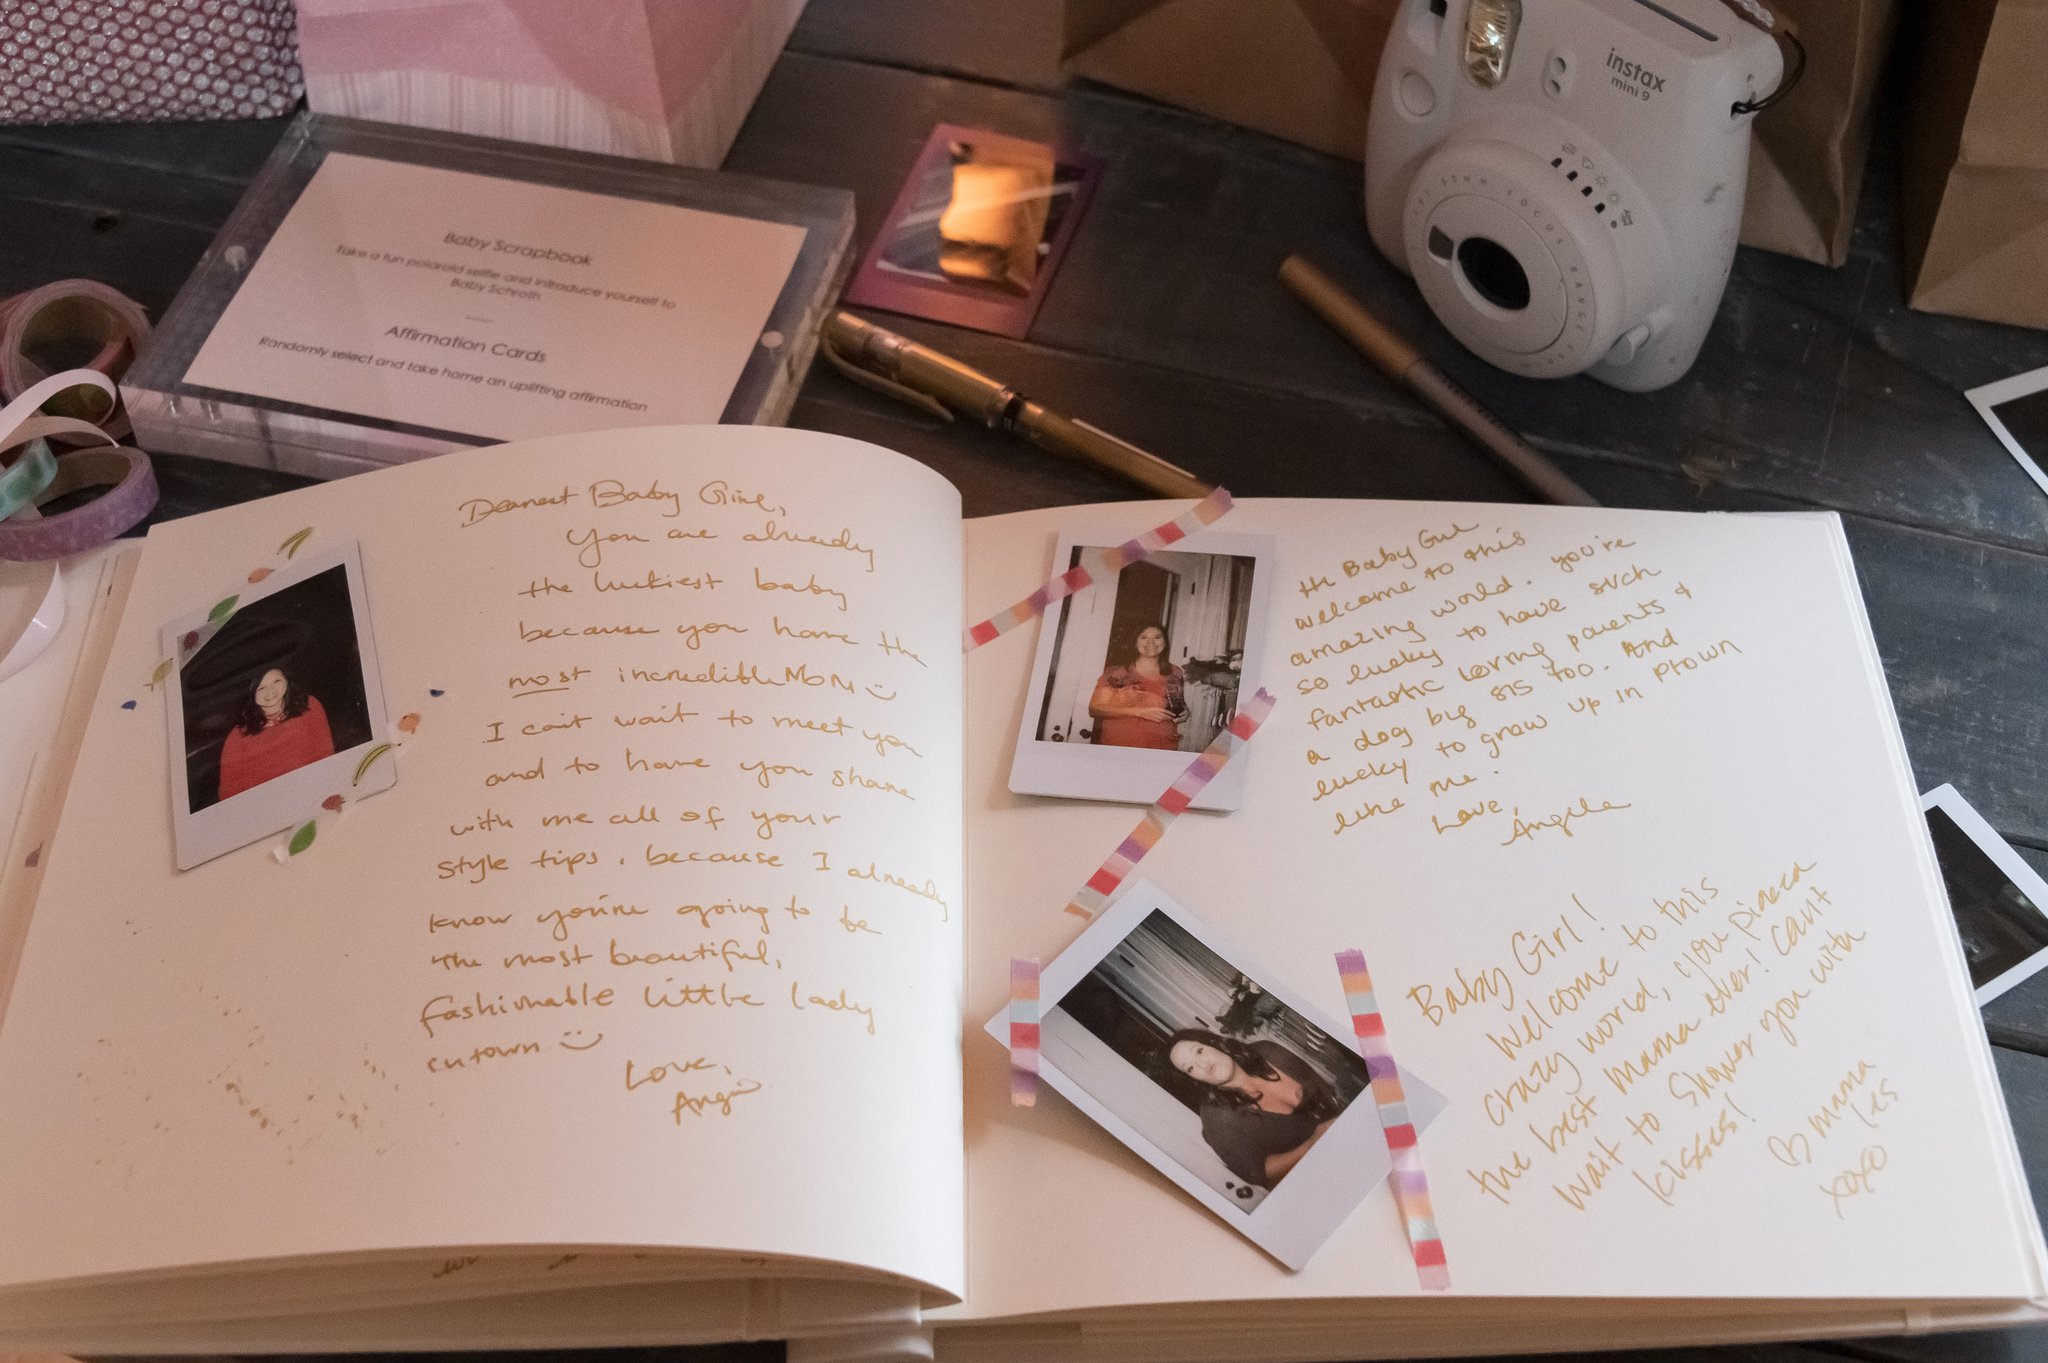 instax
mini 9
Baby Scrapbook
Take a fun polaroid selfie and introduce yourself to
Baby Schroth
Affirmation Cards
Randomly select and take home an uplifting affirmation
Dearest Baby Girl,
You are already
the luckiest baby
because you have the
most incredible MOM
I can't wait to meet you
and to have you share
with me all of your
style tips. because I already
know you're going to be
the most beautiful,
fashionable little lady
in town
Love,
Angie
Hi Baby Girl
welcome to this
amazing world. you're
so lucky to have such
fantastic loving parents &
a dog big sis too. And
lucky to grow up in ptown
like me.
Love,
Angela
Baby Girl!
Welcome to this
crazy world, you picked
the best mama ever! Cant
wait to shower you with
kisses!
♡ mama
Les
xoxo